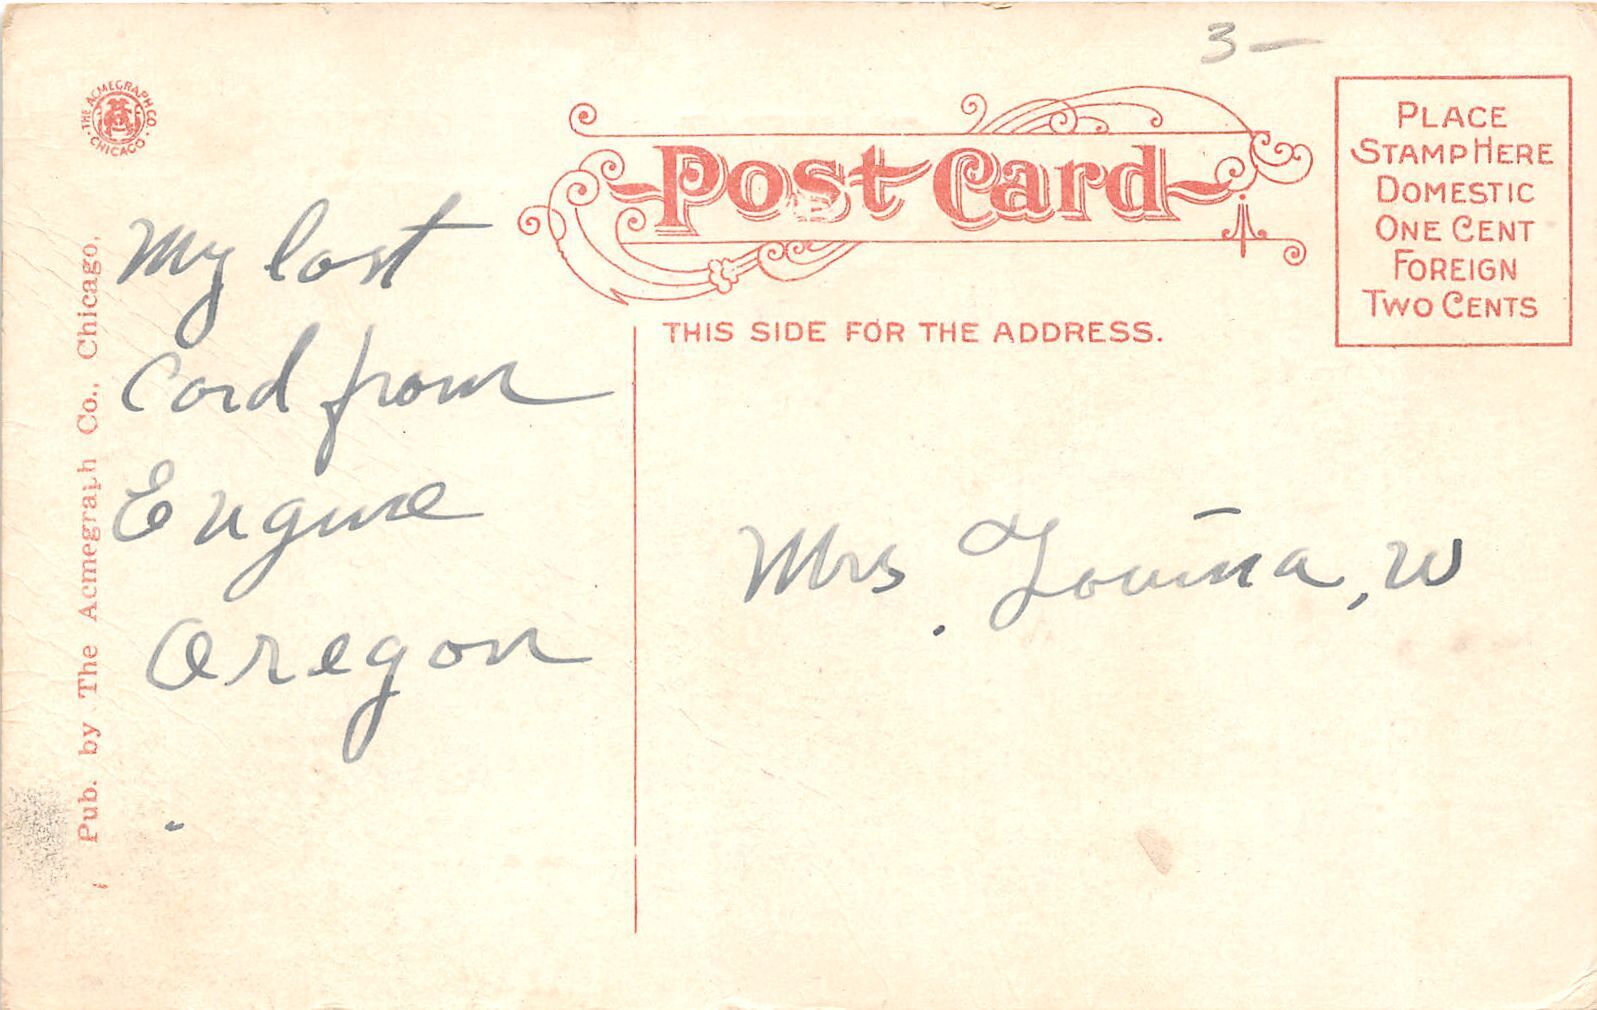 3 —
THE ACMEGRAPH CO.
CHICAGO
Post Card
PLACE
STAMP HERE
DOMESTIC
ONE CENT
FOREIGN
TWO CENTS
THIS SIDE FOR THE ADDRESS.
Pub. by The Acmegraph Co., Chicago,
My last
Card from
Eugene
Oregon
Mrs. Lovina, W